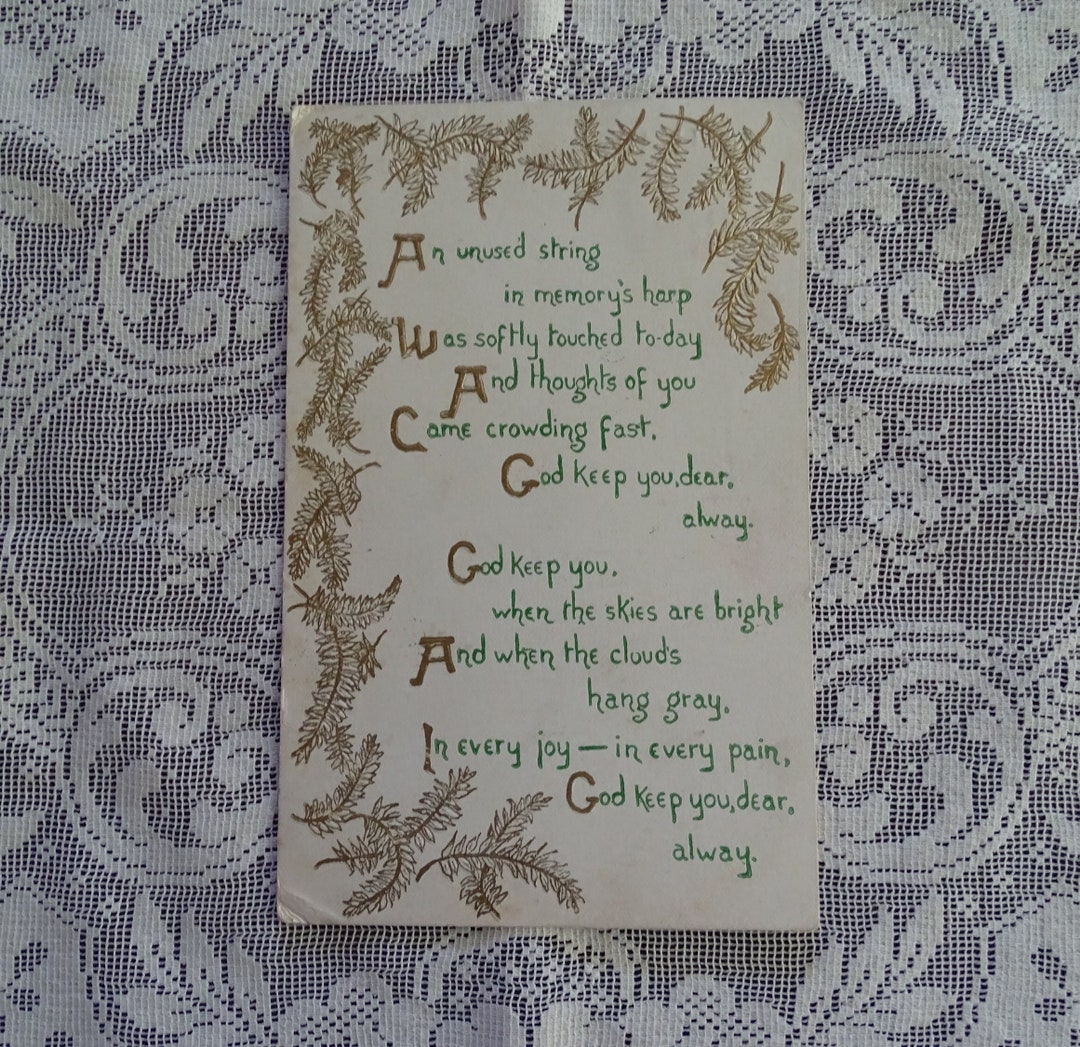 An unused string
in memory's harp
Was softly touched to-day
And thoughts of you
Came crowding fast.
God keep you, dear,
alway.
God keep you,
when the skies are bright
And when the clouds
hang gray,
In every joy — in every pain,
God keep you, dear,
alway.